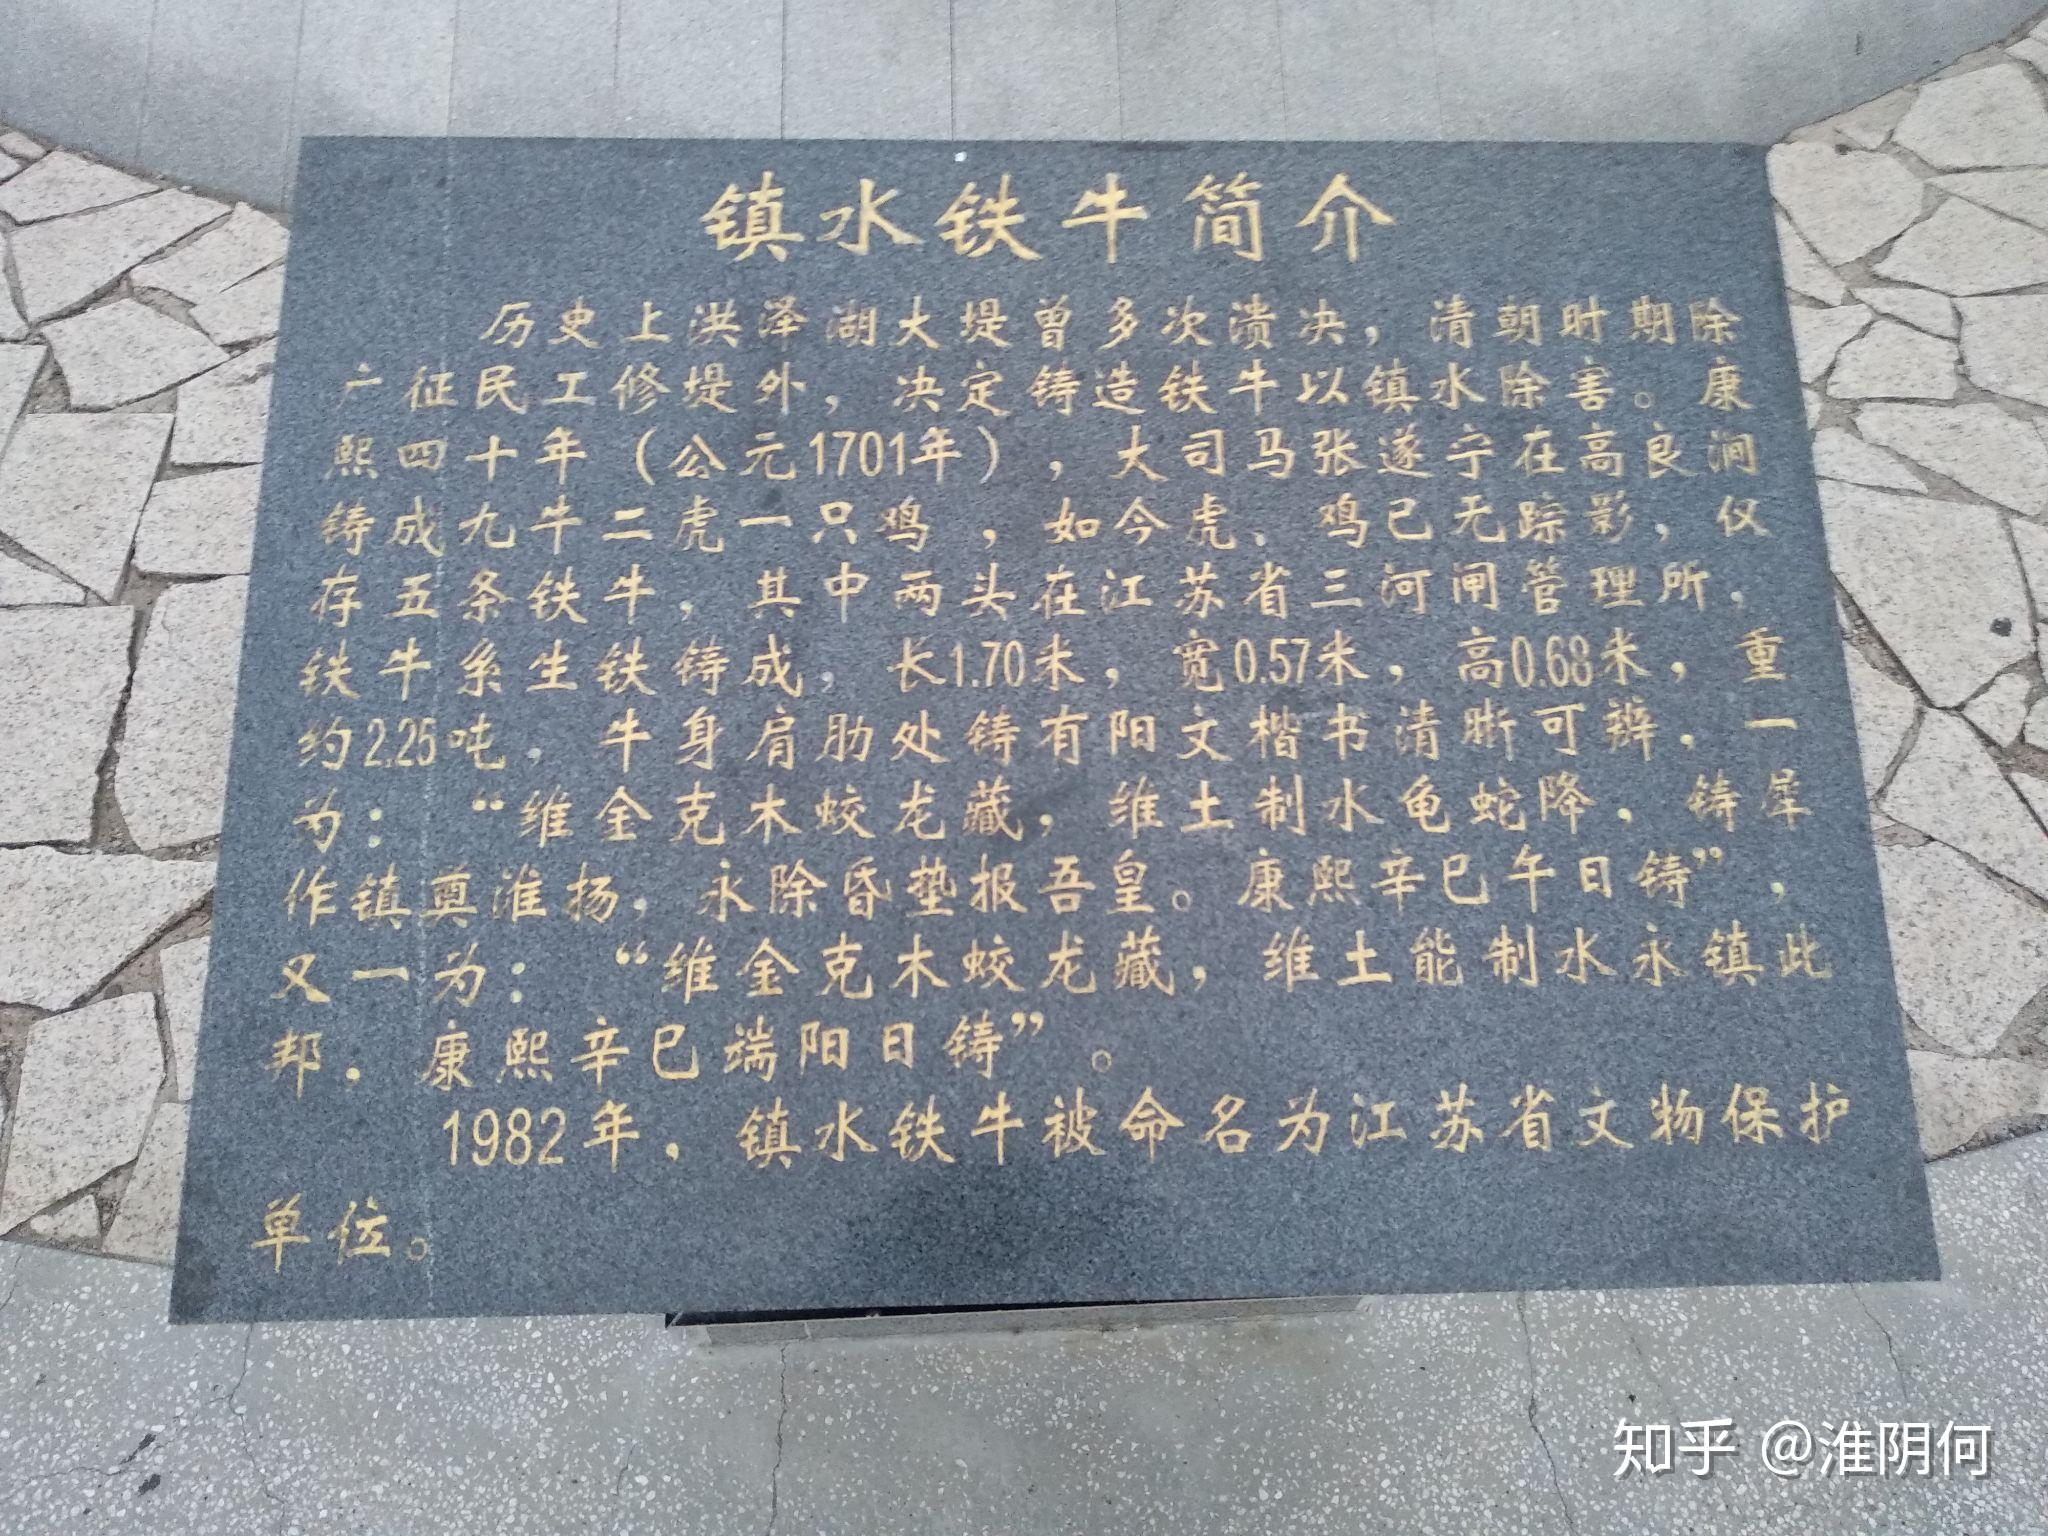 镇水铁牛简介
历史上洪泽湖大堤曾多次溃决，清朝时期除
广征民工修堤外，决定铸造铁牛以镇水除害。康
熙四十年（公元1701年），大司马张遂宁在高良涧
铸成九牛二虎一只鸡，如今虎、鸡已无踪影，仅
存五条铁牛，其中两头在江苏省三河闸管理所，
铁牛系生铁铸成，长1.70米，宽0.57米，高0.68米，重
约2.25吨．牛身肩肋处铸有阳文楷书清晰可辨．一
为：“维金克木蛟龙藏，维土制水龟蛇降，铸犀
作镇奠淮扬，永除昏垫报吾皇。康熙辛巳午日铸”，
又一为：“维金克木蛟龙藏，维土能制水永镇此
邦，康熙辛巳端阳日铸”。
1982年，镇水铁牛被命名为江苏省文物保护
单位。
知乎 @淮阴何